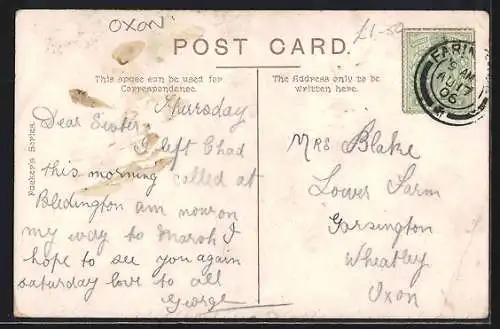 OXON
£1-50
POST CARD.
This space may be used for
Correspondence.
The Address only to be
written here.
Packer's Series.
FARIN
AU 17
06
Thursday
Dear Sister
I left Chad
this morning called at
Bledington am now on
my way to Marsh I
hope to see you again
saturday love to all
George
Mrs Blake
Lower Farm
Garsington
Wheatley
Oxon